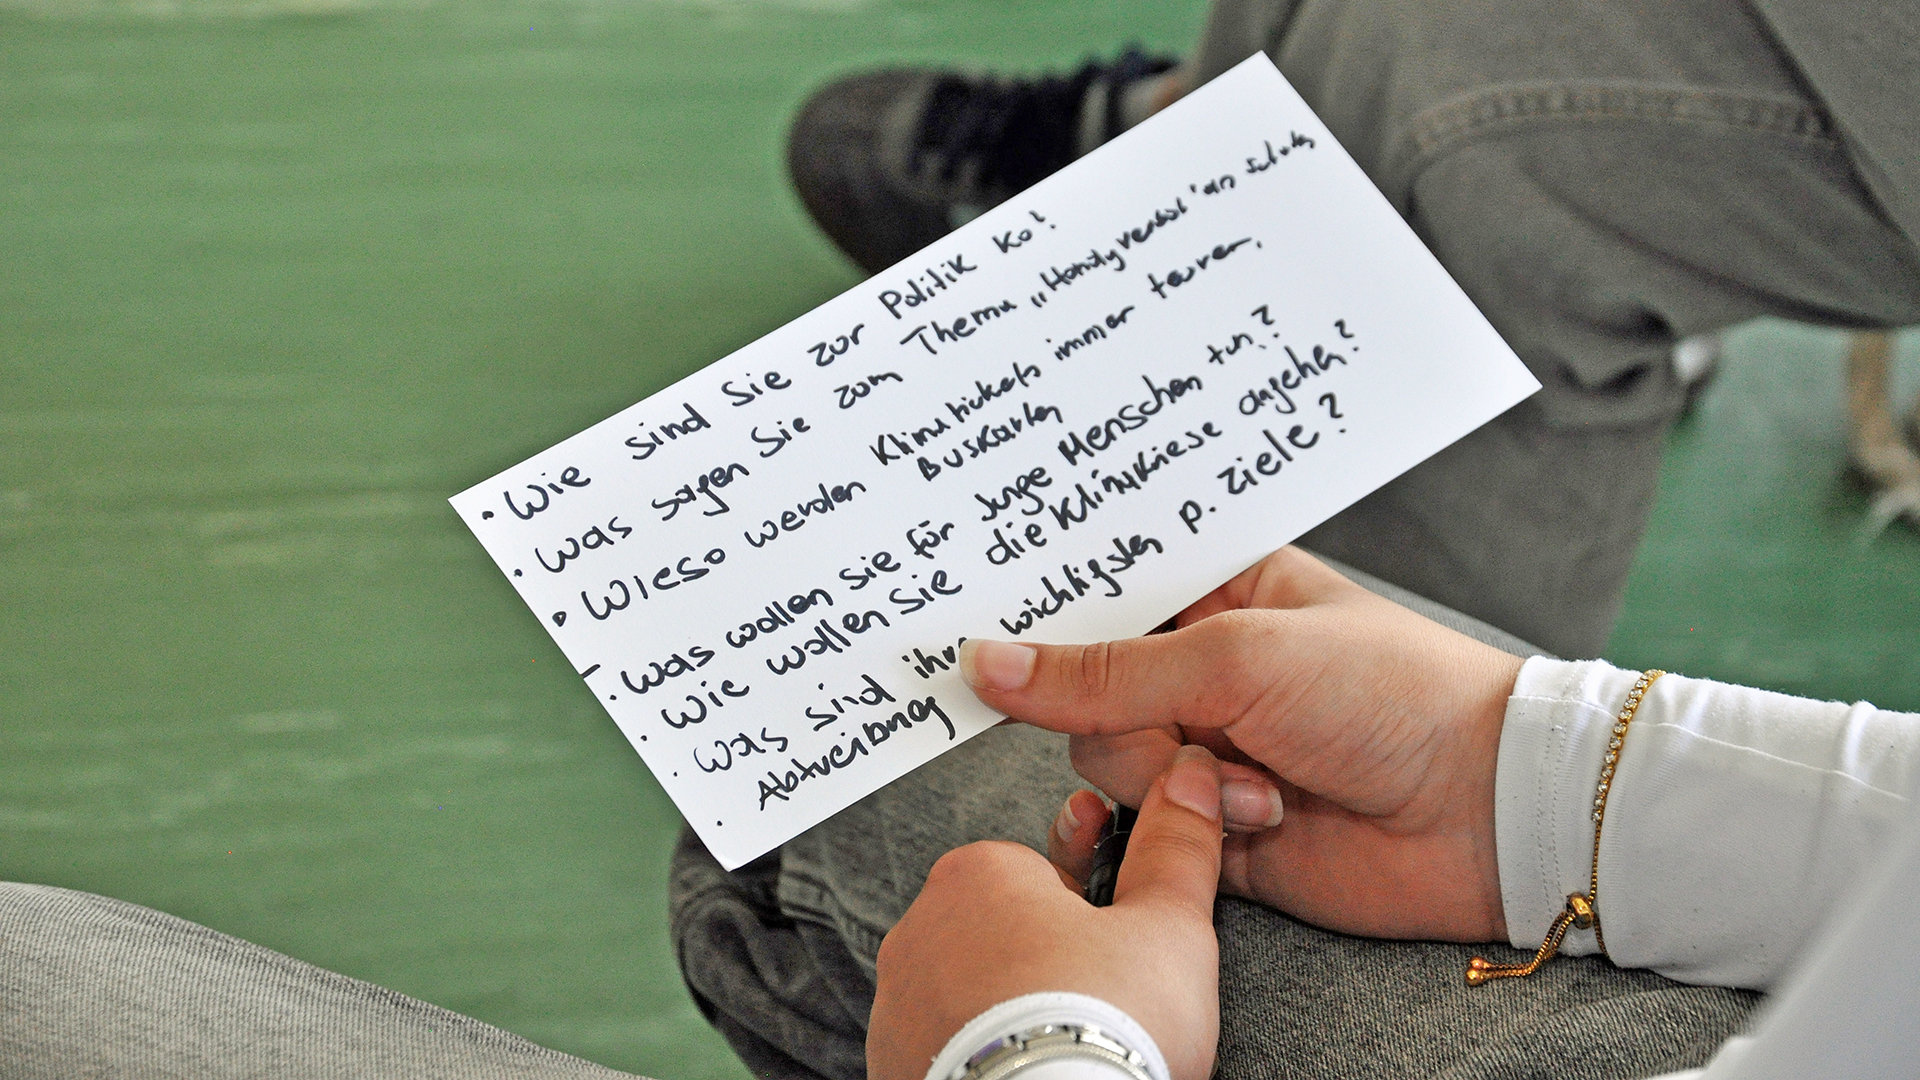 • Wie sind Sie zur Politik Ko!
• Was sagen Sie zum Thema „Handyverbot" an Schulen
• Wieso werden Klimatickets immer teurer,
Buskarten
• Was wollen Sie für Junge Menschen tun?
• Wie wollen Sie die Klimakriese angehen?
• Was sind ihre wichtigsten p. Ziele?
• Abtreibung